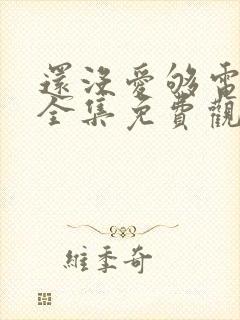 還沒愛够電
全集免費觀
維季奇